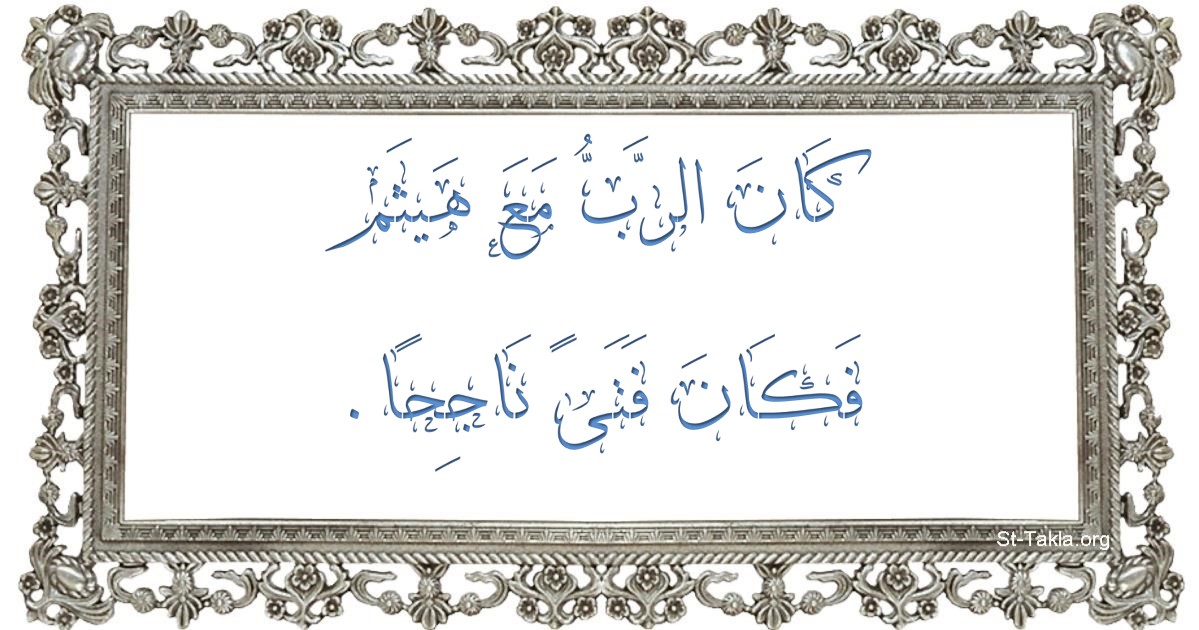 كَانَ الرَّبُّ مَعَ هَيثَمْ
فَكَانَ فَتَىً نَاجِحًا .
St-Takla.org